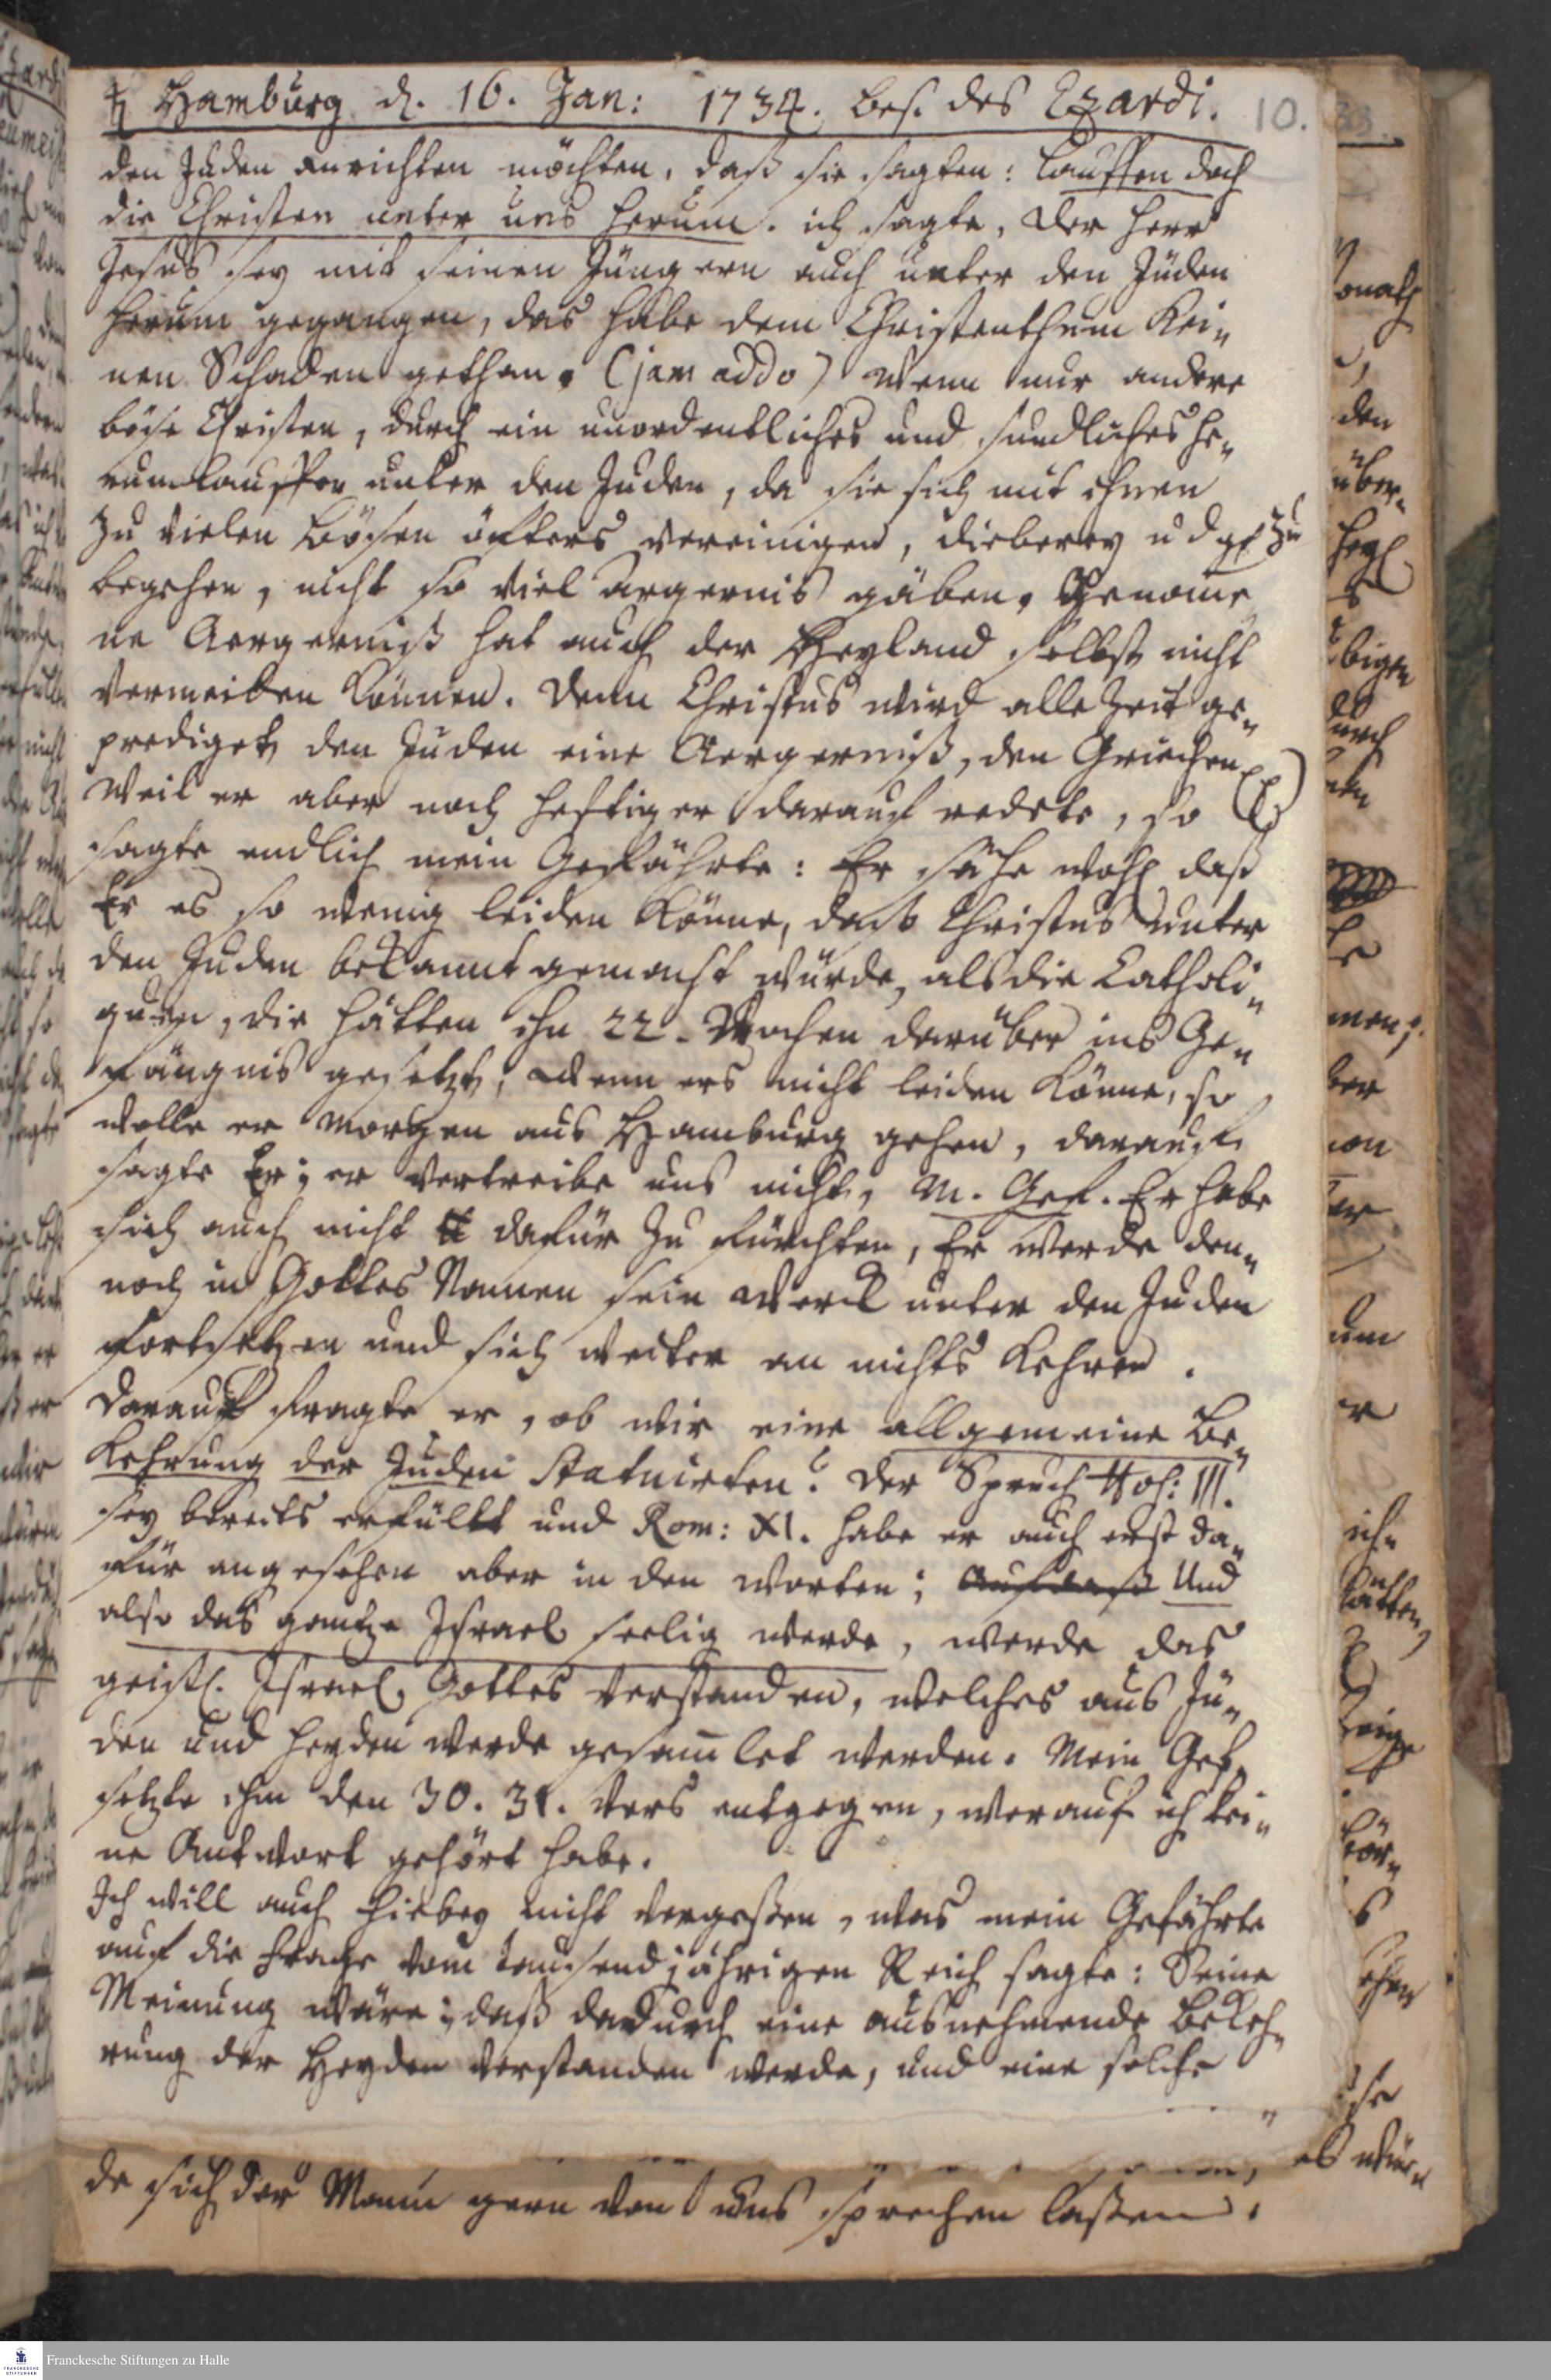 ♄ Hamburg d. 16. Jan: 1734. bes. des Ezardi. 10.
den Juden anrichten möchten, daß sie sagten: lauffen doch
die Christen unter uns herum. ich sagte, der Herr
Jesus sey mit seinen Jüngern auch unter den Juden
herum gegangen, das habe dem Christenthum kei„
nen Schaden gethan. (jam addo) Wenn nur andere
böse Christen, durch ein unordentliches und sundliches he„
rumlauffen unter den Juden, da sie sich mit ihnen
zu vielen bösen öfters vereinigen, dieberey u d gl zu
begehen, nicht so viel argernis gäben, Genom̄e
ne Aergerniß hat auch der Heyland selbst nicht
vermeiden können. Denn Christus wird alle Zeit ge„
prediget, den Juden eine Aergerniß, den Griechen
Weil er aber noch heftiger darauf redete, so
sagte endlich mein Gefährte: Er sähe wohl daß
Er es so wenig leiden könne, daß Christus unter
den Juden bekannt gemacht würde, als die Catholi„
quen, die hätten ihn 22. Wochen darüber ins Ge„
fängnis gesetzt, wenn ers nicht leiden könne, so
wolle er morgen aus Hamburg gehen, darauf
sagte Er; er vertreibe uns nicht, M. Gef. Er habe
sich auch nicht dafür zu fürchten, Er werde den„
noch in Gottes Namen sein Werck unter den Juden
fortsetzen und sich weiter an nichts kehren.
Darauf fragte er, ob wir eine allgemeine Be„
kehrung der Juden statuirten? Der Spruch Hos: III.
sey bereits erfüllt und Rom: XI. habe er auch erst da„
für angesehen aber in den Worten; Auf daß Und
also das gantze Israel seelig werde, werde das
geistl. Israel Gottes verstanden, welches aus Ju„
den und Heyden werde gesam̄let werden. Mein Gef.
setzte ihm den 30. 31. Vers entgegen, worauf ich kei„
ne Antwort gehört habe.
Ich will auch hiebey nicht vergeßen, was mein Gefährte
auf die Frage vom tausendjährigen Reich sagte: Seine
Meinung wäre; daß dadurch eine ausnehmende Bekeh„
rung der Heyden verstanden werde, und eine solche
es wür„
de sich der Mann gern von uns sprechen laßen.
Franckesche Stiftungen zu Halle